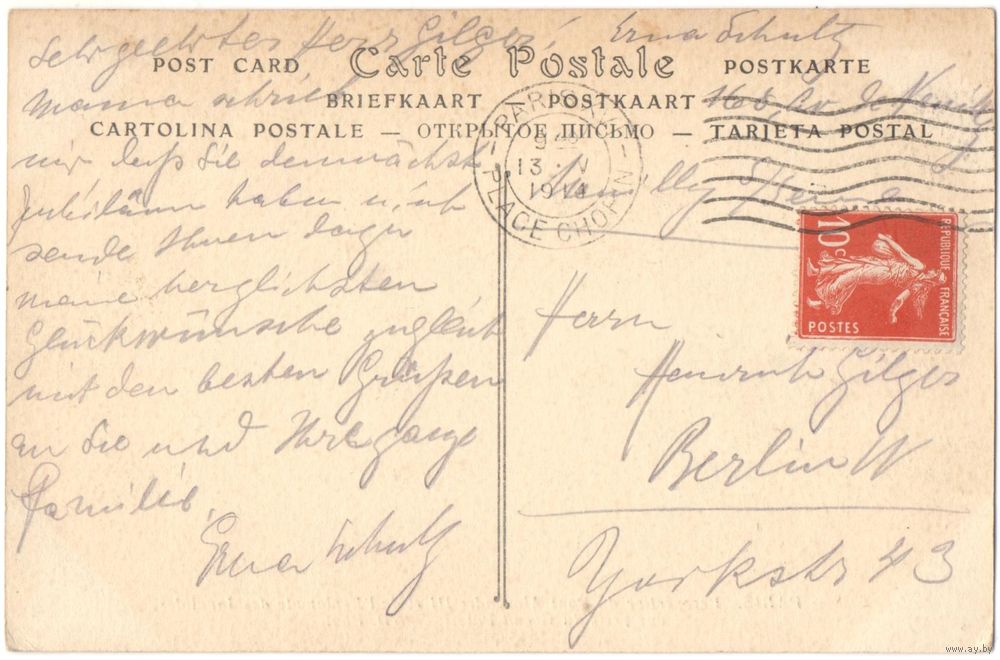 Sehr geehrter Herr Gilges, Erna Schultz
POST CARD Carte Postale POSTKARTE
BRIEFKAART — POSTKAART
CARTOLINA POSTALE — ОТКРЫТОЕ ПИСЬМО — TARJETA POSTAL
Mama schrieb
mir daß Sie demnächst
Jubiläum haben u. ich
sende Ihnen daher
meine herzlichsten
Glückwünsche zugleich
mit den besten Grüßen
an Sie und Ihre ganze
Familie.
Erna Schultz
PARIS
13 V
1914
PLACE CHOPIN
Neuilly Seine
10 c
REPUBLIQUE FRANÇAISE
POSTES
Herrn
Heinrich Gilges
Berlin W
Yorkstr 43
www.ay.by